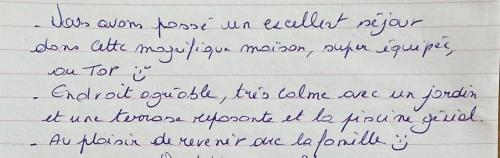 - Nous avons passé un excellent séjour
dans cette magnifique maison, super équipée,
au Top
- Endroit agréable, très calme avec un jardin
et une terrasse reposante et la piscine génial.
- Au plaisir de revenir avec la famille